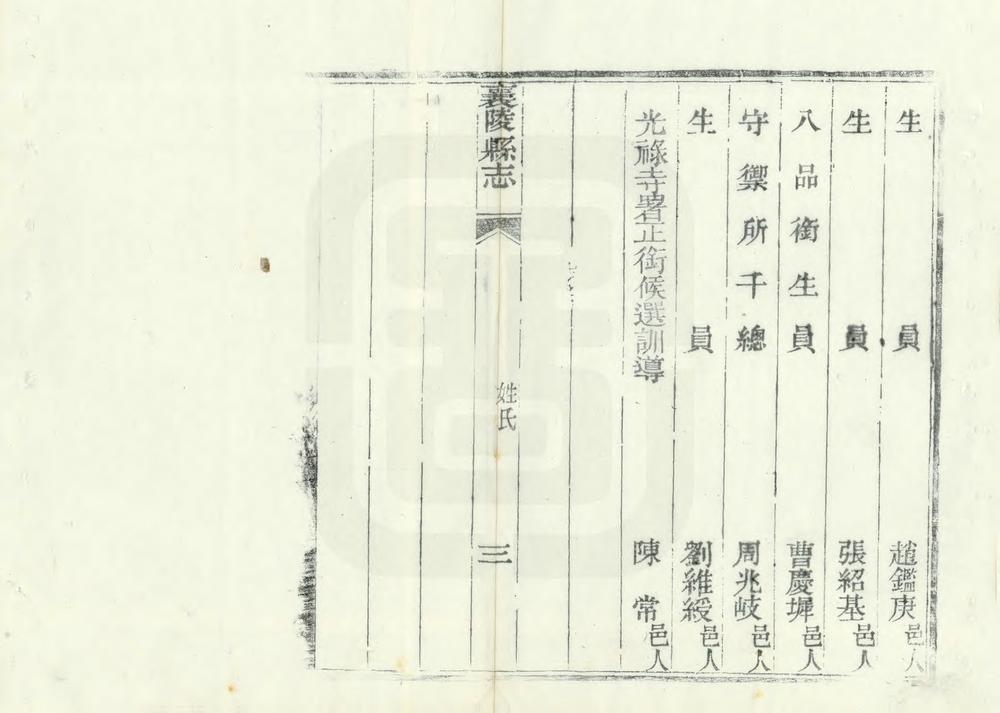 生員 趙鑑庚邑人
生員 張紹基邑人
八品銜生員 曹慶墀邑人
守禦所千總 周兆岐邑人
生員 劉維綬邑人
光祿寺署正銜候選訓導 陳常邑人
襄陵縣志 姓氏 三